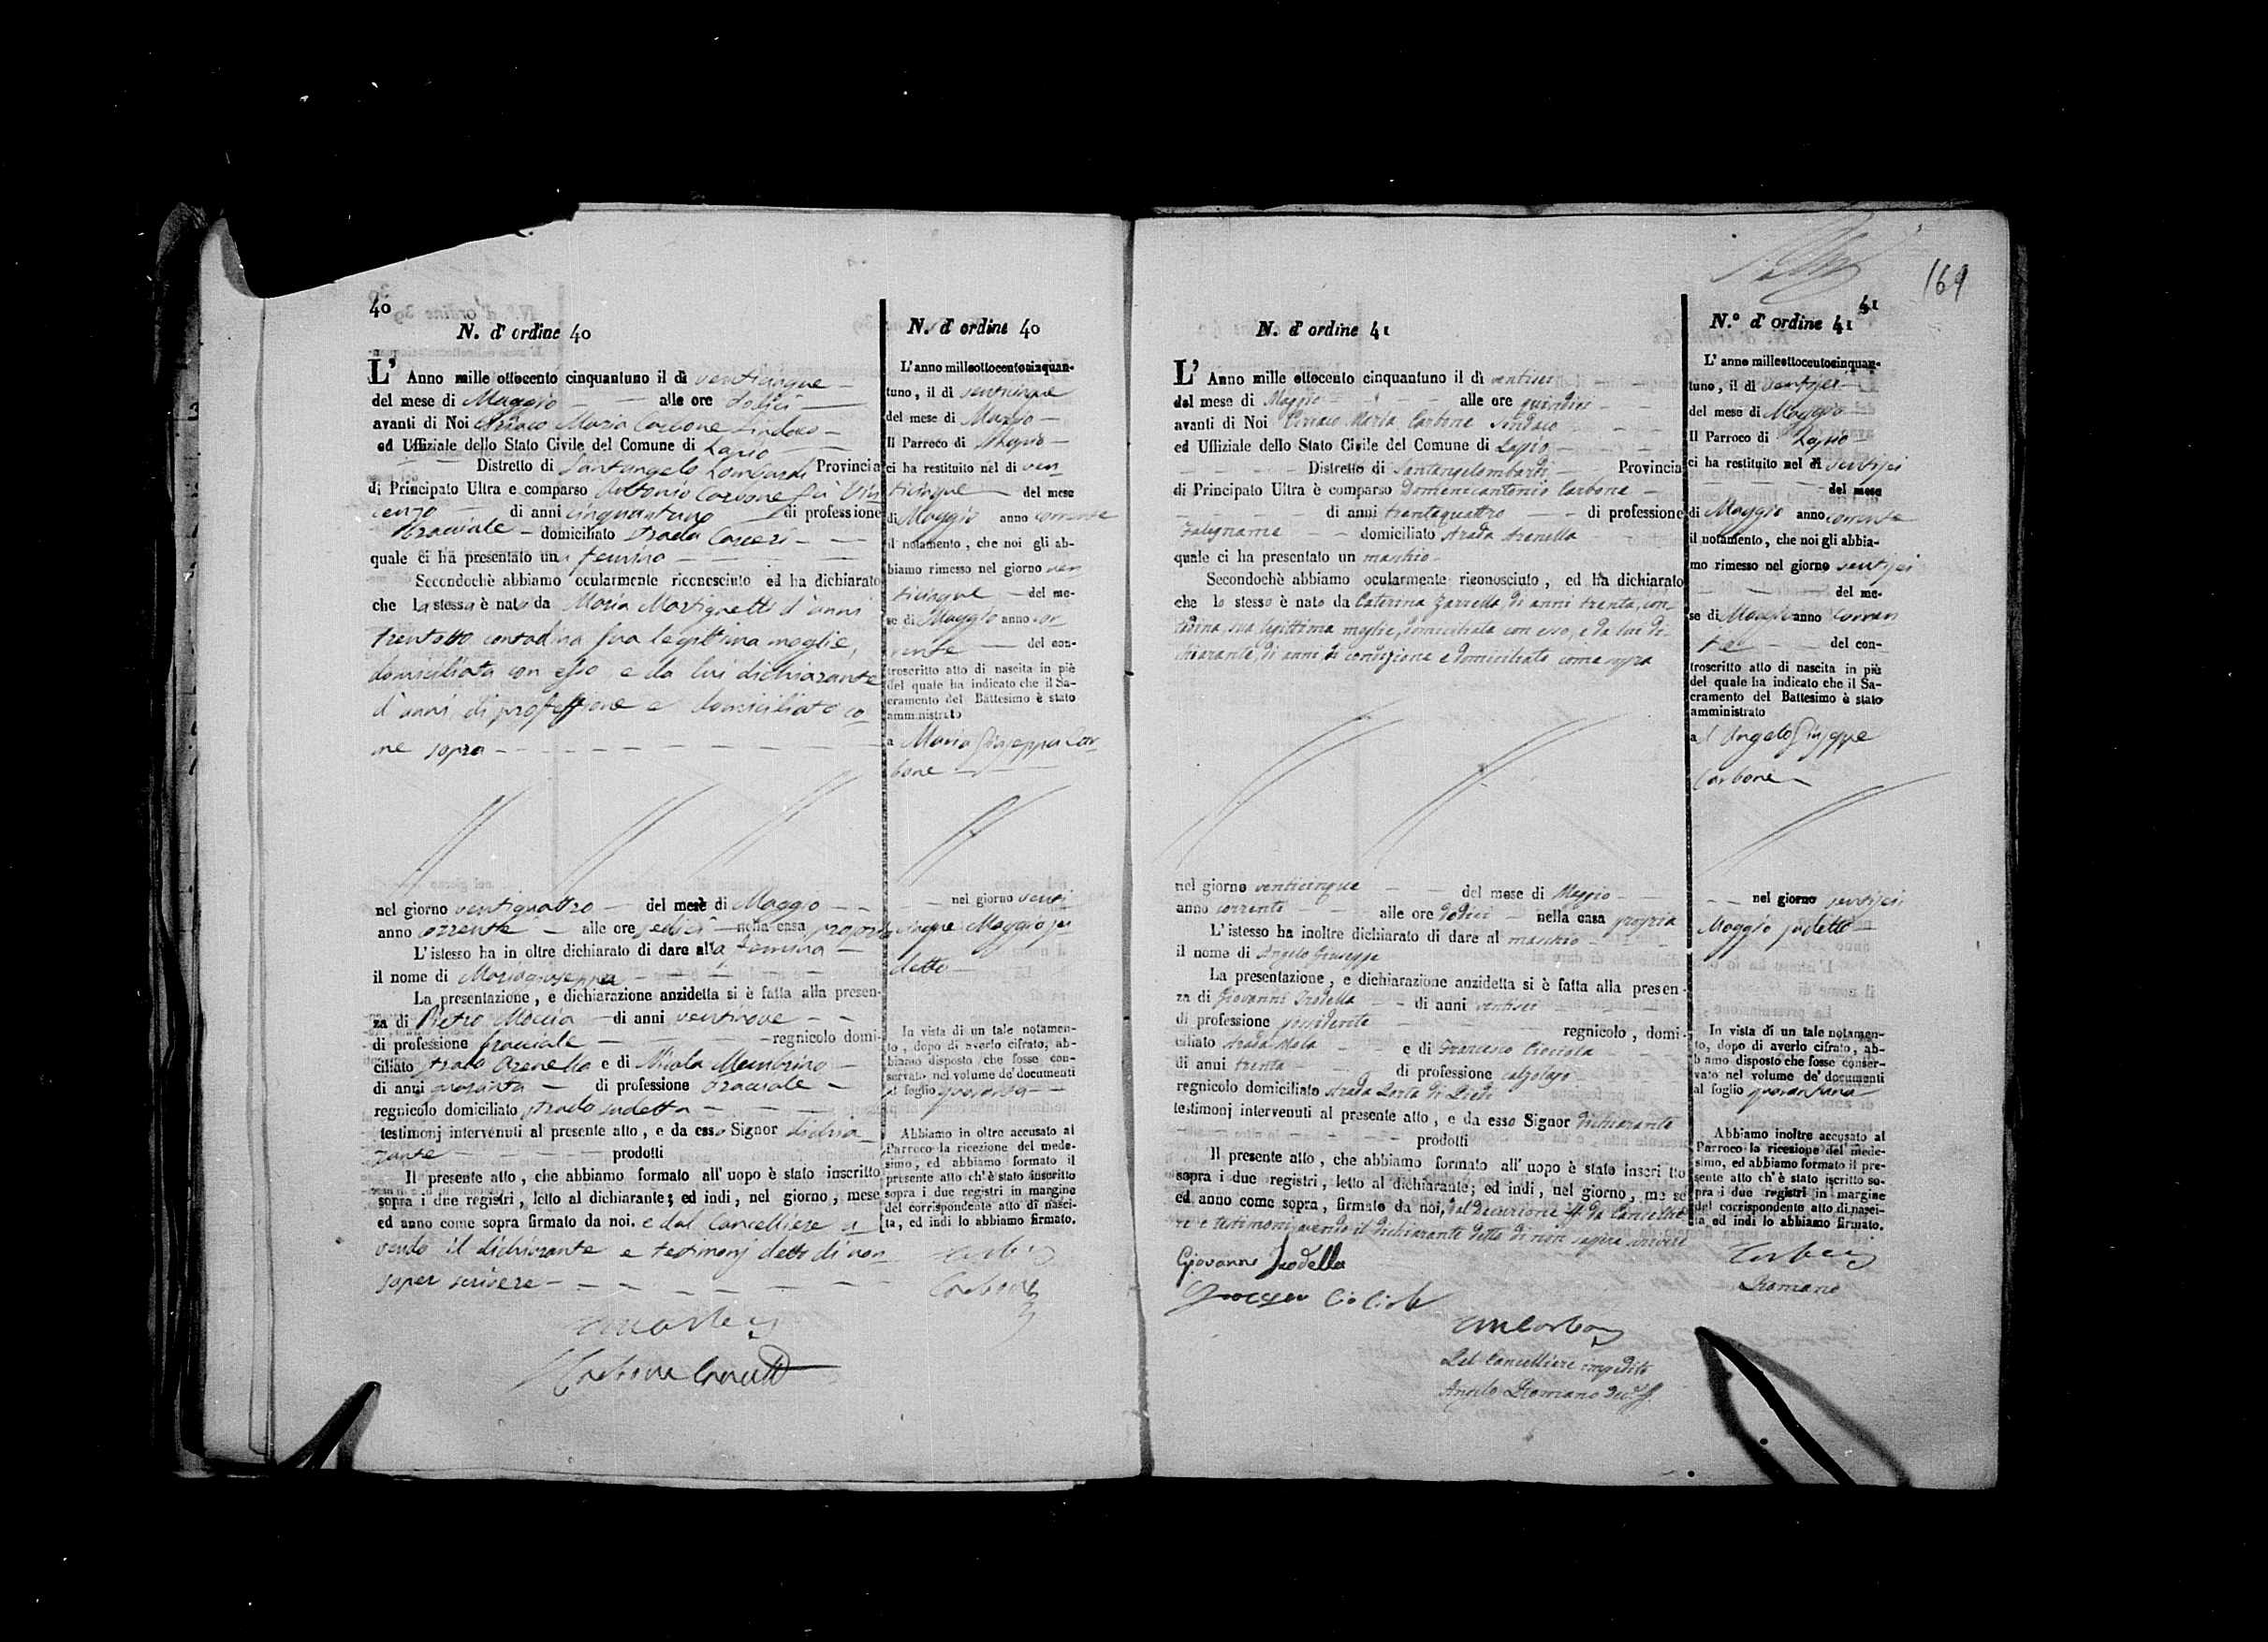 40
N. d' ordine 40
L' Anno mille ottocento cinquantuno il dì venticinque
del mese di Maggio alle ore dodici
avanti di Noi Ciriaco Maria Carbone Sindaco
ed Uffiziale dello Stato Civile del Comune di Lapio
Distretto di Santangelo Lombardi Provincia
di Principato Ultra e comparso Antonio Carbone fu Vin
cenzo di anni cinquantuno di professione
Bracciale domiciliato strada Carceri
quale ci ha presentato una femina
Secondochè abbiamo ocularmente riconosciuto ed ha dichiarato
che la stessa è nata da Maria Martignetti d'anni
trentotto contadina sua legittima moglie,
domiciliata con esso, e da lui dichiarante
d'anni, di professione e domiciliato co
me sopra
nel giorno ventiquattro del mese di Maggio
anno corrente alle ore sedici nella casa propria
L' istesso ha in oltre dichiarato di dare alla femina
il nome di Mariagiuseppa
La presentazione, e dichiarazione anzidetta si è fatta alla presen-
za di Pietro Moccia di anni ventinove
di professione bracciale regnicolo domi-
ciliato strada Arenella e di Nicola Mambrino
di anni quaranta di professione bracciale
regnicolo domiciliato strada sudetta
testimonj intervenuti al presente atto, e da esso Signor dichia
rante prodotti
Il presente atto, che abbiamo formato all' uopo è stato inscritto
sopra i due registri, letto al dichiarante; ed indi, nel giorno, mese
ed anno come sopra firmato da noi. e dal Cancelliere a
vendo il dichiarante e testimonj detto di non
saper scrivere
Carbone
N. d' ordine 40
L' anno milleottocentocinquan-
tuno, il dì venticinque
del mese di Maggio
Il Parroco di Lapio
ci ha restituito nel dì ven
ticinque del mese
di Maggio anno corrente
il notamento, che noi gli ab-
biamo rimesso nel giorno ven
ticinque del me-
se di Maggio anno cor
rente del con-
troscritto atto di nascita in piè
del quale ha indicato che il Sa-
cramento del Battesimo è stato
amministrato
a Maria Giuseppa Car
bone
nel giorno venti
cinque Maggio su
detto
In vista di un tale notamen-
to, dopo di averlo cifrato, ab-
biamo disposto che fosse con-
servato nel volume de' documenti
al foglio quaranta
Abbiamo in oltre accusato al
Parroco la ricezione del mede-
simo, ed abbiamo formato il
presente atto ch' è stato inscritto
sopra i due registri in margine
del corrispondente atto di nasci-
ta, ed indi lo abbiamo firmato.
Carbone
Carbone
N. d' ordine 41
L' Anno mille ottocento cinquantuno il dì ventisei
del mese di Maggio alle ore quindici
avanti di Noi Ciriaco Maria Carbone Sindaco
ed Uffiziale dello Stato Civile del Comune di Lapio
Distretto di Santangelombardi Provincia
di Principato Ultra è comparso Domenicantonio Carbone
di anni trentaquattro di professione
Falegname domiciliato strada Arenella
quale ci ha presentato un maschio
Secondochè abbiamo ocularmente riconosciuto, ed ha dichiarato
che lo stesso è nato da Caterina Zarrella, di anni trenta, con-
tadina, sua legittima moglie, domiciliata con esso, e da lui di-
chiarante, di anni di condizione e domiciliato come sopra
nel giorno venticinque del mese di Maggio
anno corrente alle ore dodici nella casa propria
L' istesso ha inoltre dichiarato di dare al maschio
il nome di Angelo Giuseppe
La presentazione, e dichiarazione anzidetta si è fatta alla presen-
za di Giovanni Trodella di anni ventisei
di professione possidente regnicolo, domi-
ciliato strada Mola e di Francesco Ciociola
di anni trenta di professione calzolajo
regnicolo domiciliato strada Porta di Piedi
testimonj intervenuti al presente atto, e da esso Signor dichiarante
prodotti
Il presente atto, che abbiamo formato all' uopo è stato inscri tto
sopra i due registri, letto al dichiarante; ed indi, nel giorno, me se
ed anno come sopra, firmato da noi, dal Decurione ff. da Cancellie
re e testimonj avendo il dichiarante detto di non sapere scrivere
Giovanni Trodella
Ciociola
CM Carbone
Pel Cancelliere impedito
Angelo Romano
169
41
N.° d' ordine 41
L' anno milleottocentocinquan-
tuno, il dì ventisei
del mese di Maggio
Il Parroco di Lapio
ci ha restituito nel dì ventisei
del mese
di Maggio anno corrente
il notamento, che noi gli abbia-
mo rimesso nel giorno ventisei
del me-
se di Maggio anno corren
te del con-
troscritto atto di nascita in piè
del quale ha indicato che il Sa-
cramento del Battesimo è stato
amministrato
ad Angelo Giuseppe
Carbone
nel giorno ventisei
Maggio sudetto
In vista di un tale notamen-
to, dopo di averlo cifrato, ab-
biamo disposto che fosse conser-
vato nel volume de' documenti
al foglio quarantuno
Abbiamo inoltre accusato al
Parroco la ricezione del mede-
simo, ed abbiamo formato il pre-
sente atto ch' è stato iscritto so-
pra i due registri in margine
del corrispondente atto di nasci-
ta, ed indi lo abbiamo firmato.
Carbone
Romano